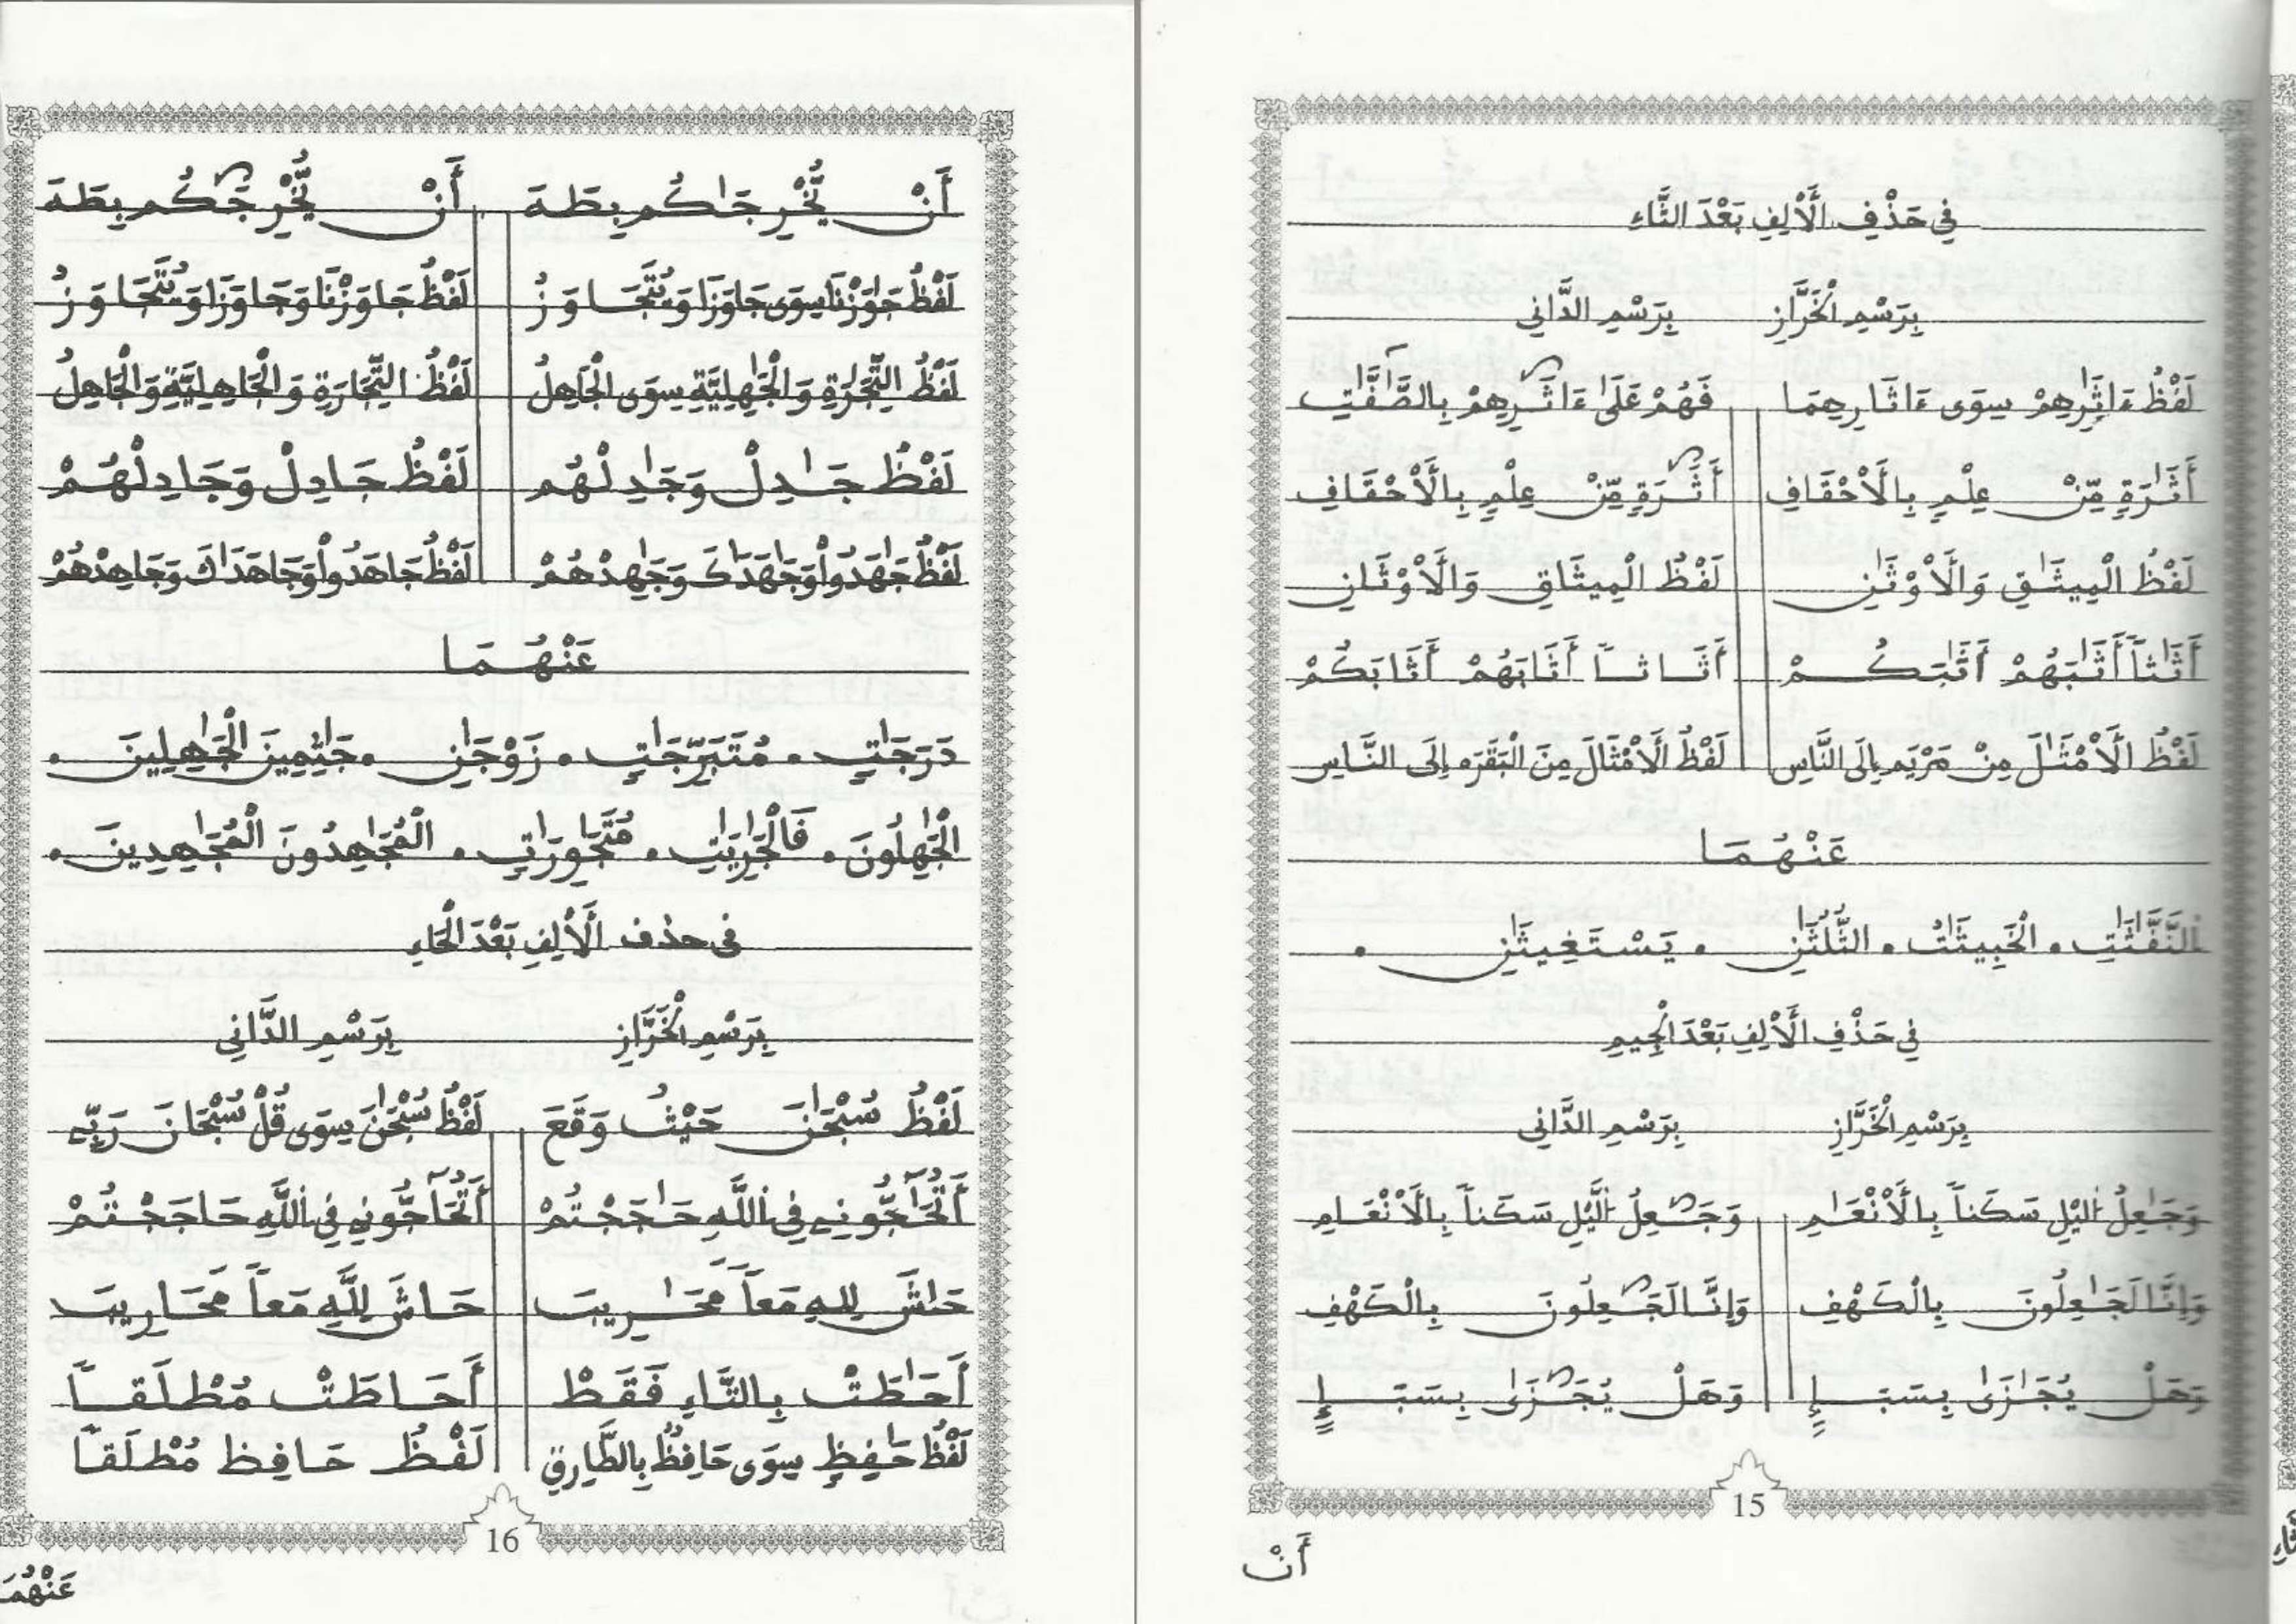 فِي حَذْفِ الْأَلِفِ بَعْدَ الثَّاءِ
بِرَسْمِ الْخَرَّازِ بِرَسْمِ الدَّانِي
لَفْظُ ءَاثَٰرِهِمْ سِوَى ءَاثَارِهِمَا فَهُمْ عَلَىٰ ءَاثَٰرِهِمْ بِالصَّٰٓفَّٰتِ
أَثَٰرَةٍ مِّنْ عِلْمٍ بِالْأَحْقَافِ أَثَٰرَةٍ مِّنْ عِلْمٍ بِالْأَحْقَافِ
لَفْظُ الْمِيثَٰقِ وَالْأَوْثَٰنِ لَفْظُ الْمِيثَاقِ وَالْأَوْثَانِ
أَثَٰثاً أَثَٰبَهُمْ أَثَٰبَكُمْ أَثَاثاً أَثَابَهُمْ أَثَابَكُمْ
لَفْظُ الْأَمْثَٰلَ مِنْ مَرْيَمَ إِلَى النَّاسِ لَفْظُ الْأَمْثَالَ مِنَ الْبَقَرَه إِلَى النَّاسِ
عَنْهُمَا
النَّفَّٰثَٰتِ . الْخَبِيثَٰتُ . الثُّلُثَٰنِ . يَسْتَغِيثَٰنِ .
فِي حَذْفِ الْأَلِفِ بَعْدَ الْجِيمِ
بِرَسْمِ الْخَرَّازِ بِرَسْمِ الدَّانِي
وَجَٰعِلُ الَّيْلِ سَكَناً بِالْأَنْعَٰمِ وَجَٰعِلُ الَّيْلِ سَكَناً بِالْأَنْعَامِ
وَإِنَّا لَجَٰعِلُونَ بِالْكَهْفِ وَإِنَّا لَجَٰعِلُونَ بِالْكَهْفِ
وَهَلْ يُجَٰزَىٰ بِسَبَإٍ وَهَلْ يُجَٰزَىٰ بِسَبَإٍ
15
أَنْ
أَنْ يُّخْرِجَٰكُم بِطَهَ أَنْ يُّخْرِجَٰكُم بِطَهَ
لَفْظُ جَٰوَزْنَا سِوَى جَاوَزَا وَنَتَجَاوَزُ لَفْظُ جَاوَزْنَا وَجَاوَزَا وَنَتَجَاوَزُ
لَفْظُ التِّجَٰرَةِ وَالْجَٰهِلِيَّةِ سِوَى الْجَاهِلُ لَفْظُ التِّجَارَةِ وَالْجَاهِلِيَّةِ وَالْجَاهِلُ
لَفْظُ جَٰدِلْ وَجَٰدِلْهُم لَفْظُ جَادِلْ وَجَادِلْهُمْ
لَفْظُ جَٰهَدُواْ وَجَٰهَدَٰكَ وَجَٰهِدْهُمْ لَفْظُ جَاهَدُواْ وَجَاهَدَاكَ وَجَاهِدْهُمْ
عَنْهُمَا
دَرَجَٰتٍ . مُتَبَرِّجَٰتٍ . زَوْجَٰنِ . جَٰثِمِينَ الْجَٰهِلِينَ .
الْجَٰهِلُونَ . فَالْجَٰرِيَٰتِ . مُتَجَٰوِرَٰتٍ . الْمُجَٰهِدُونَ الْمُجَٰهِدِينَ .
فى حذف الْأَلِفِ بَعْدَ الْحَاءِ
بِرَسْمِ الْخَرَّازِ بِرَسْمِ الدَّانِي
لَفْظُ سُبْحَٰنَ حَيْثُ وَقَعَ لَفْظُ سُبْحَٰنَ سِوَى قُلْ سُبْحَانَ رَبِّے
أَتُحَٰٓجُّونِے فِي اللَّهِ حَٰجَجْتُمْ أَتُحَآجُّونِے فِي اللَّهِ حَاجَجْتُمْ
حَٰشَ لِلهِ مَعاً مَحَٰرِيبَ حَاشَ لِلَّهِ مَعاً مَحَارِيبَ
أَحَٰطَتْ بِالتَّاءِ فَقَطْ أَحَاطَتْ مُطْلَقاً
لَفْظُ حَٰفِظٍ سِوَى حَافِظٌ بِالطَّارِقِ لَفْظُ حَافِظ مُطْلَقاً
16
عَنْهُمَا